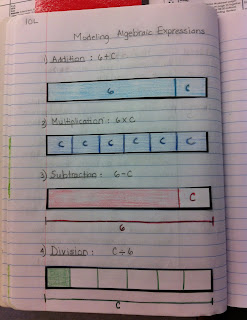 102
Modeling Algebraic Expressions
1) Addition : 6+C
6 C
2) Multiplication : 6×C
C C C C C C
3) Subtraction : 6-C
C
6
4) Division : C÷6
C